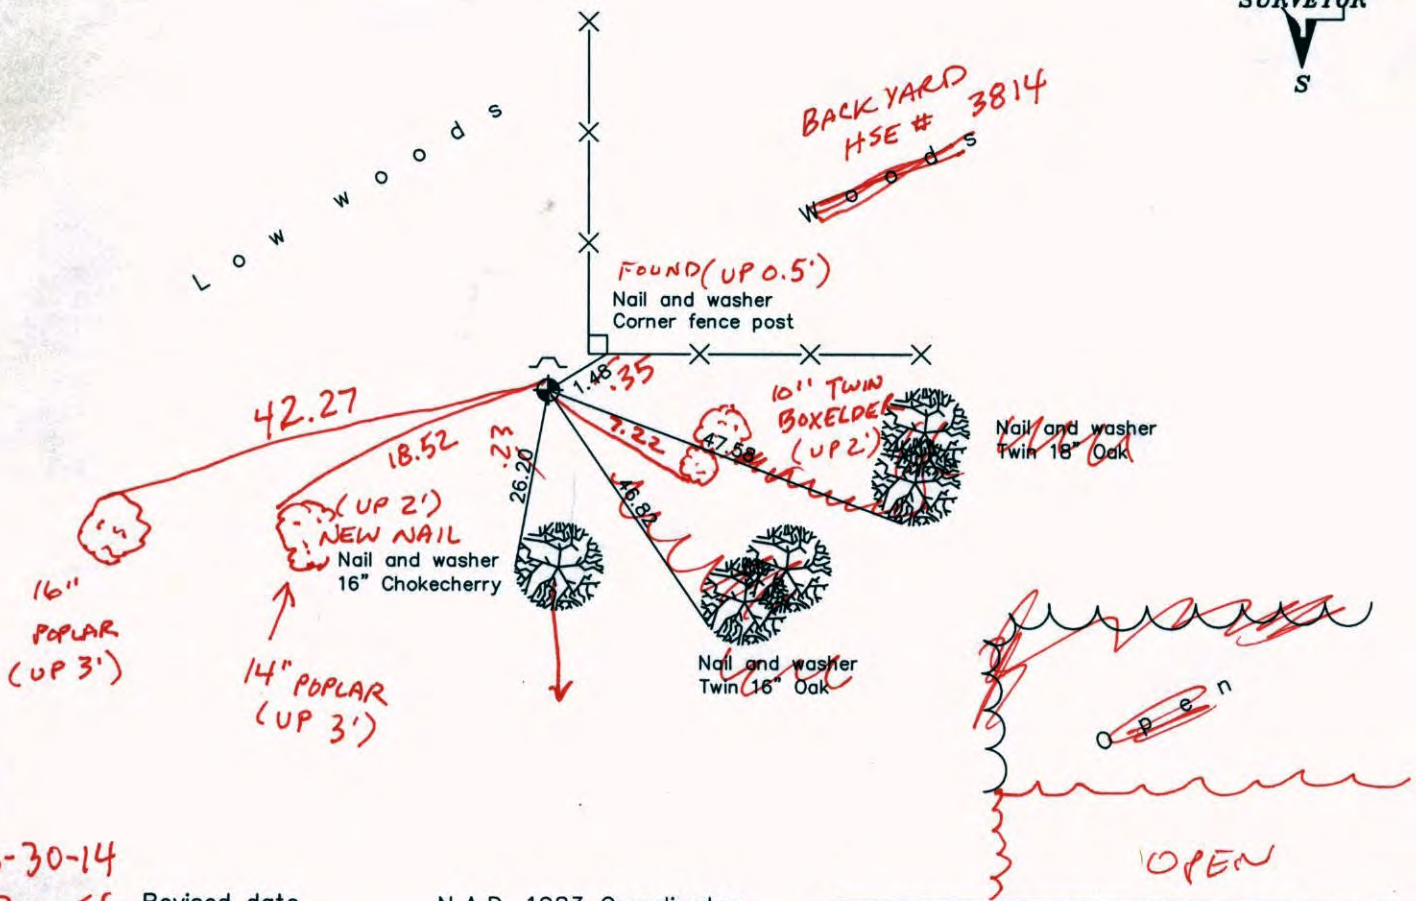 SURVEYOR
S
BACK YARD
HSE # 3814
Woods
Low woods
FOUND (UP 0.5')
Nail and washer
Corner fence post
1.48
.35
42.27
18.52
.23
26.20
7.22
47.58
46.82
10" TWIN
BOXELDER
(UP 2')
Nail and washer
Twin 18" Oak
(UP 2')
NEW NAIL
Nail and washer
16" Chokecherry
16"
POPLAR
(UP 3')
14" POPLAR
(UP 3')
Nail and washer
Twin 16" Oak
Open
OPEN
-30-14
Revised date
N.A.D. 1983